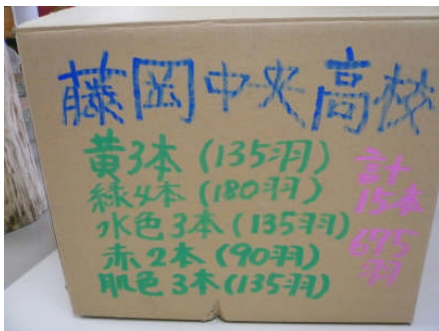 藤岡中央高校
黄3本(135羽)
緑4本(180羽)
水色3本(135羽)
赤2本(90羽)
肌色3本(135羽)
計
15本
675
羽